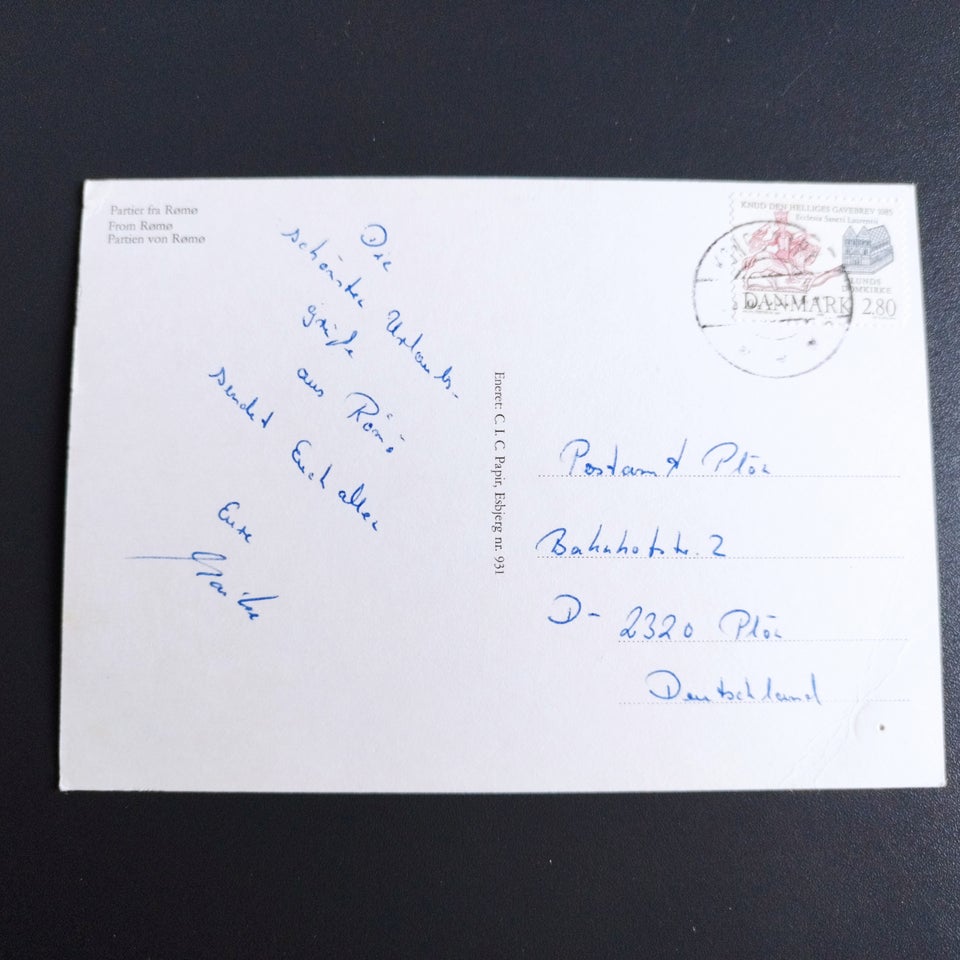 Partier fra Rømø
From Rømø
Partien von Rømø
Die
schönsten Urlaubs-
grüße
aus Römö
sendet Euch allen
Eure
KNUD DEN HELLIGES GAVEBREV 1085
Ecclesia Sancti Laurentii
LUNDS
DOMKIRKE
DANMARK 2.80
Eneret: C. I. C. Papir, Esbjerg nr. 931
Postamt Plön
Bahnhofstr. 2
D- 2320 Plön
Deutschland